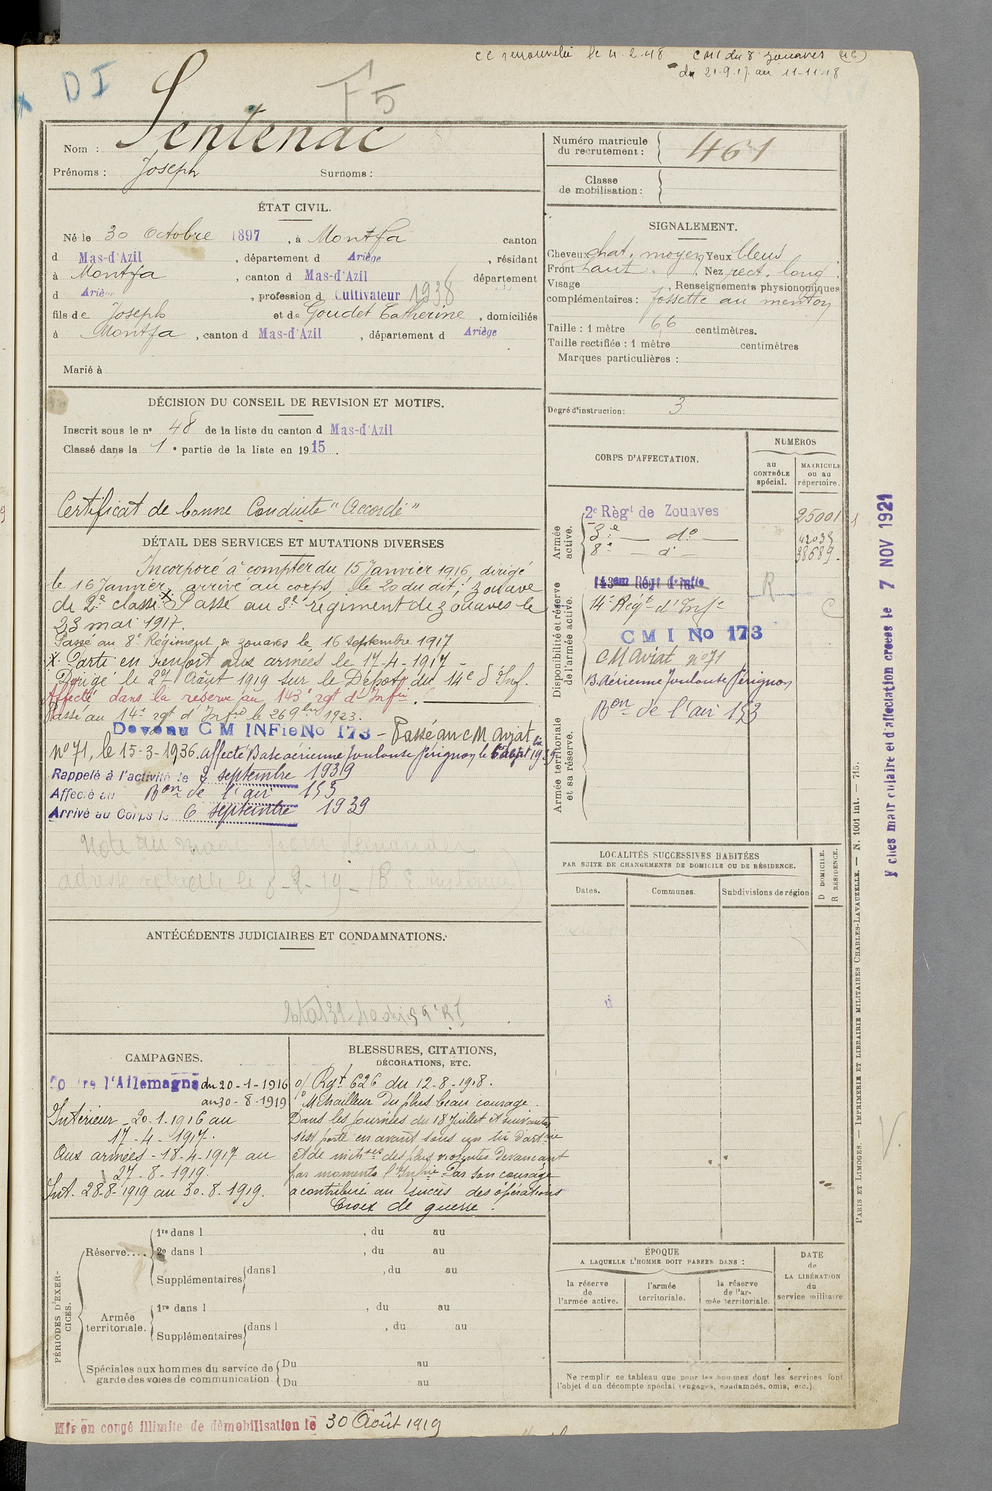 CC renouvelée le 4.2.48 CM1 du 8 zouaves
du 21-9-17 au 11-11-18
DI
F5
Nom : Sentenac
Prénoms : Joseph Surnoms :
Numéro matricule du recrutement : 461
Classe de mobilisation :
ÉTAT CIVIL.
Né le 30 Octobre 1897, à Montfa canton
d Mas-d'Azil, département d Ariège, résidant
à Montfa, canton d Mas-d'Azil département
d Ariège, profession d Cultivateur 1938
fils de Joseph et de Goudet Catherine, domiciliés
à Montfa, canton d Mas-d'Azil, département d Ariège
Marié à
SIGNALEMENT.
Cheveux chat. moyen Yeux bleus
Front haut. Nez rect. long
Visage Renseignements physionomiques
complémentaires : fossette au menton
Taille : 1 mètre 66 centimètres.
Taille rectifiée : 1 mètre centimètres
Marques particulières :
Degré d'instruction : 3
DÉCISION DU CONSEIL DE REVISION ET MOTIFS.
Inscrit sous le n° 48 de la liste du canton d Mas-d'Azil
Classé dans la 1e partie de la liste en 1915.
Certificat de bonne Conduite "Accordé"
DÉTAIL DES SERVICES ET MUTATIONS DIVERSES
Incorporé à compter du 15 Janvier 1916, dirigé
le 16 Janvier, arrivé au corps, le 20 du dit, zouave
de 2e classe. X Passé au 3e régiment de zouaves le
23 mai 1917.
Passé au 8e Régiment de zouaves le 16 septembre 1917
X. Parti en renfort aux armées le 17-4-1917 -
Dirigé le Août 1919 sur le Dépôt du 14e d'Inf.
Affecté dans la réserve au 143e rgt d'Infie.
Passé au 14e rgt d'Infie le 26 9bre 1923.
Devenu C M INFie No 173 - Passé au CM Aviat.
n° 71, le 15-3-1936. Affecté Base aérienne Toulouse Pérignon le
Rappelé à l'activité le 2 septembre 1939
Affecté au Bon de l'air 153
Arrivé au Corps le 6 septembre 1939
CORPS D'AFFECTATION.
NUMÉROS
au CONTRÔLE spécial.
MATRICULE ou au répertoire.
Armée active.
2e Régt de Zouaves 25001
3e - do - 42035
8e - do - 38689
Disponibilité et réserve de l'armée active.
143em Régt d'Infie R
14e Régt d'Infie C
CMI No 173
CM Aviat n° 71
B Aérienne Toulouse Pérignon
Bon de l'air 153
Armée territoriale et sa réserve.
LOCALITÉS SUCCESSIVES HABITÉES
PAR SUITE DE CHANGEMENTS DE DOMICILE OU DE RÉSIDENCE.
Dates. Communes. Subdivisions de région
D DOMICILE.
R RÉSIDENCE.
ANTÉCÉDENTS JUDICIAIRES ET CONDAMNATIONS.
CAMPAGNES.
Contre l'Allemagne du 20-1-1916
au 30-8-1919
Intérieur - 20.1.1916 au
17-4-1917.
Aux armées - 18-4-1917 au
27-8-1919.
Int. 28-8-1919 au 30.8.1919.
BLESSURES, CITATIONS,
DÉCORATIONS, ETC.
o/ Rgt 626 du 12-8-1918.
Mitrailleur du plus beau courage.
Dans les journées du 18 Juillet et suivantes
s'est porté en avant sous un tir d'artie
et de mitrses des plus violentes devançant
par moments l'Infie. Par son courage
a contribué au succès des opérations
Croix de guerre.
PÉRIODES D'EXERCICES.
Réserve....
1re dans l , du au
2e dans l , du au
Supplémentaires dans l , du au
Armée territoriale.
1re dans l , du au
Supplémentaires dans l , du au
Spéciales aux hommes du service de garde des voies de communication
Du au
Du au
ÉPOQUE
A LAQUELLE L'HOMME DOIT PASSER DANS :
la réserve de l'armée active.
l'armée territoriale.
la réserve de l'armée territoriale.
DATE de LA LIBÉRATION du service militaire
Ne remplir ce tableau que pour les hommes dont les services font
l'objet d'un décompte spécial (engagés, condamnés, omis, etc.).
Mis en congé illimité de démobilisation le 30 Août 1919
PARIS ET LIMOGES. — IMPRIMERIE ET LIBRAIRIE MILITAIRES CHARLES-LAVAUZELLE. — N. 1001 int. — 715.
et d'affectation créées le 7 NOV 1921